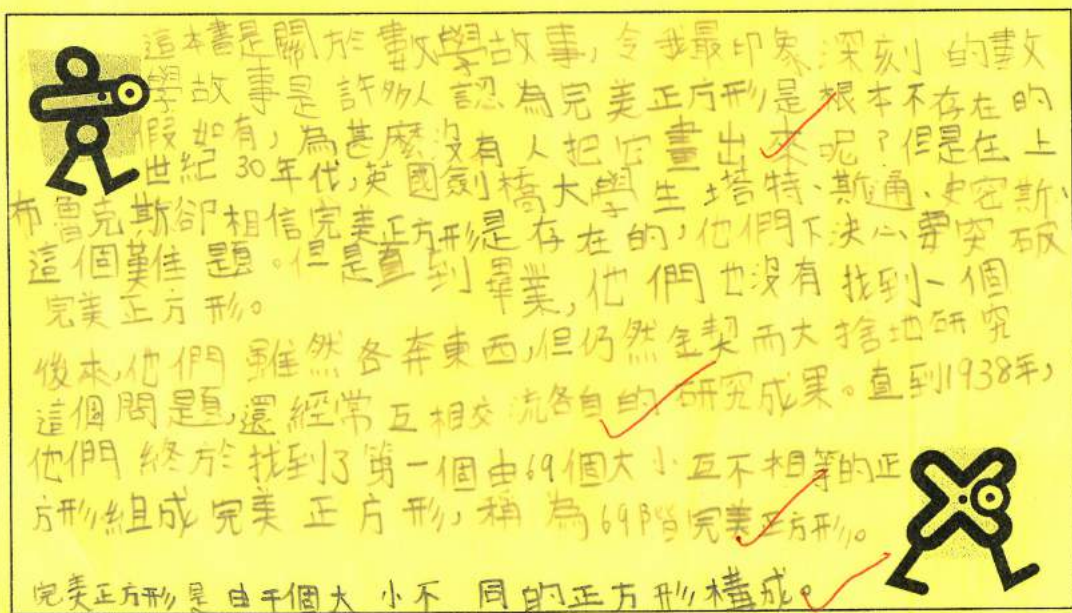 這本書是關於數學故事,令我最印象深刻的數
學故事是許多人認為完美正方形是根本不存在的
假如有,為甚麼沒有人把它畫出來呢?但是在上
世紀30年代,英國劍橋大學生塔特、斯通、史密斯、
布魯克斯卻相信完美正方形是存在的,他們下決心要突破
這個難題。但是直到畢業,他們也沒有找到一個
完美正方形。
後來,他們雖然各奔東西,但仍然金契而大捨地研究
這個問題,還經常互相交流各自的研究成果。直到1938年,
他們終於找到了第一個由69個大小互不相等的正
方形組成完美正方形,稱為69階完美正方形。
完美正方形是由干個大小不同的正方形構成。